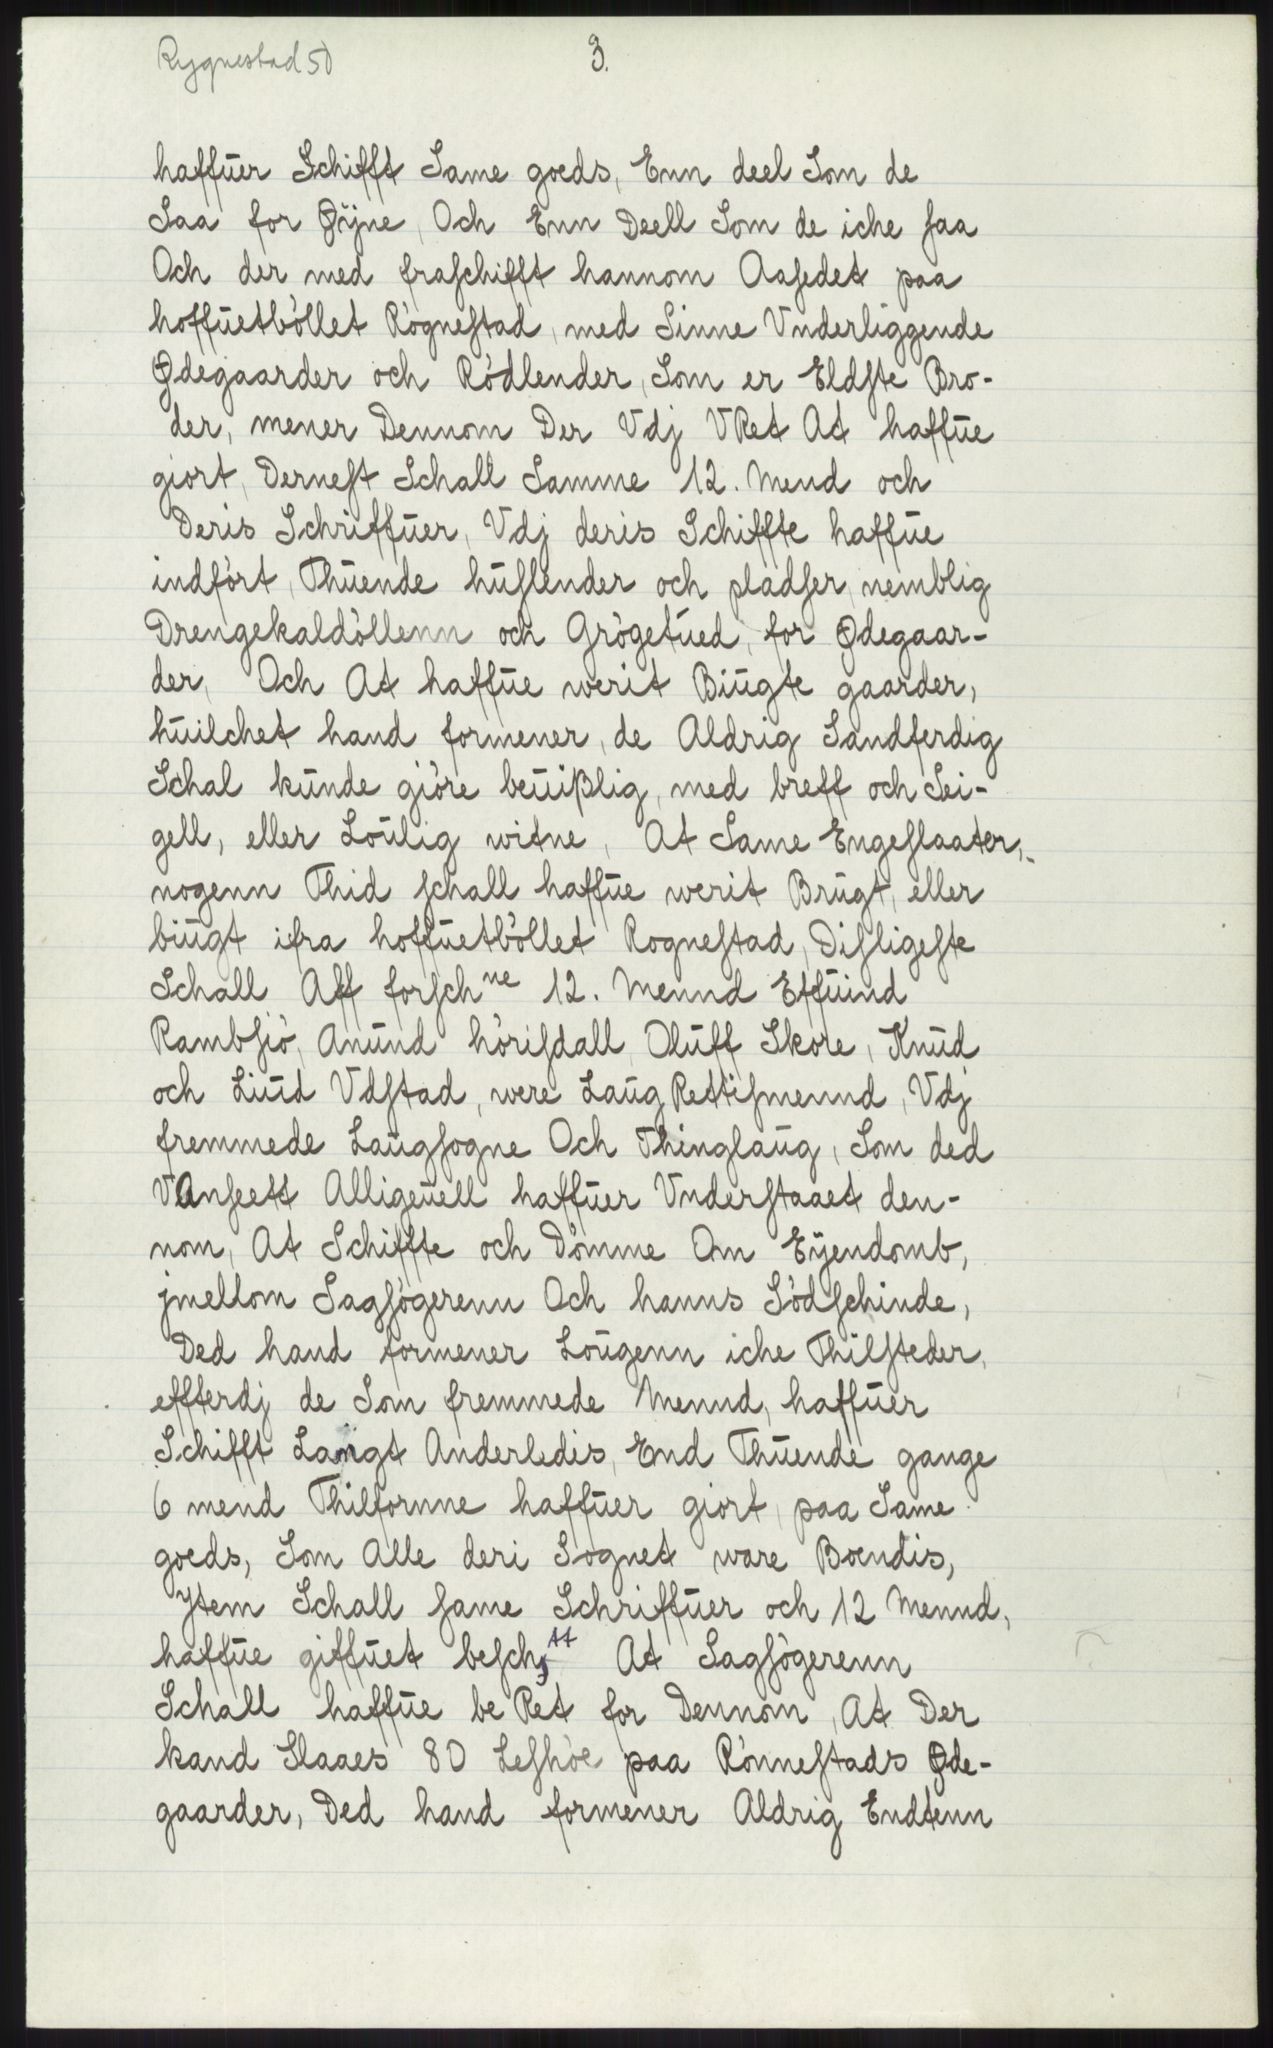 Rygnestad 50
3.
haffūer Schifft Same goeds, Enn deel Som de
Saa for Øÿne, Och Enn Deell Som de iche saa
Och der med fraschifft hannom Aasedet paa
hoffūetböllet Rögnestad, med Sinne Vnderliggende
Ødegaarder och Rödlender, Som er Eldste Bro-
der, mener Dennom Der Vdj VRet At haffūe
giort, Dernest Schall Samme 12. Mend och
Deris Schriffūer, Vdj deris Schiffte haffūe
indfört, Thūende hūslender och pladser, nemblig
Drengekaldöllenn och Grögetūed, for Ødegaar-
der, Och At haffūe werit Biūgte gaarder,
hūilchet hand formener, de Aldrig Sandferdig
Schal kūnde giöre beūißlig, med breff och Sei-
gell, eller Loūlig witne, At Same Engeslaater,
nogenn Thid schall haffūe werit Brūgt, eller
biūgt ifra hoffūetböllet Rognestad, Disligeste
Schall Aff forschne 12. Mennd Effūind
Rambsiö, Anūnd hörisdall, Olūff Skore, Knūd
och Liūd Vdstad, were LaūgRettismennd, Vdj
fremmede Laūgsogne Och Thinglaūg, Som ded
VAnseett Alligeūell haffūer Vnderstaaet den-
nom, At Schiffte och Dömme Om Eÿendomb,
jmellom Sagsögerenn Och hanns Södschinde,
Ded hand formener Loūgenn iche Thilsteder,
effterdj de Som fremmede Mennd, haffūer
Schifft Langt Anderledis, End Thūende gange
6 mend Thilfornne haffūer giort, paa Same
goeds, Som Alle deri Sognet ware Boendis,
Ytem Schall same Schriffūer och 12 Mennd,
haffūe giffūet beschtt At Sagsögerenn
Schall haffūe beRet for Dennom, At Der
kand Slaaes 80 Leshöe paa Rönnestads Øde-
gaarder, Ded hand formener Aldrig Endtenn